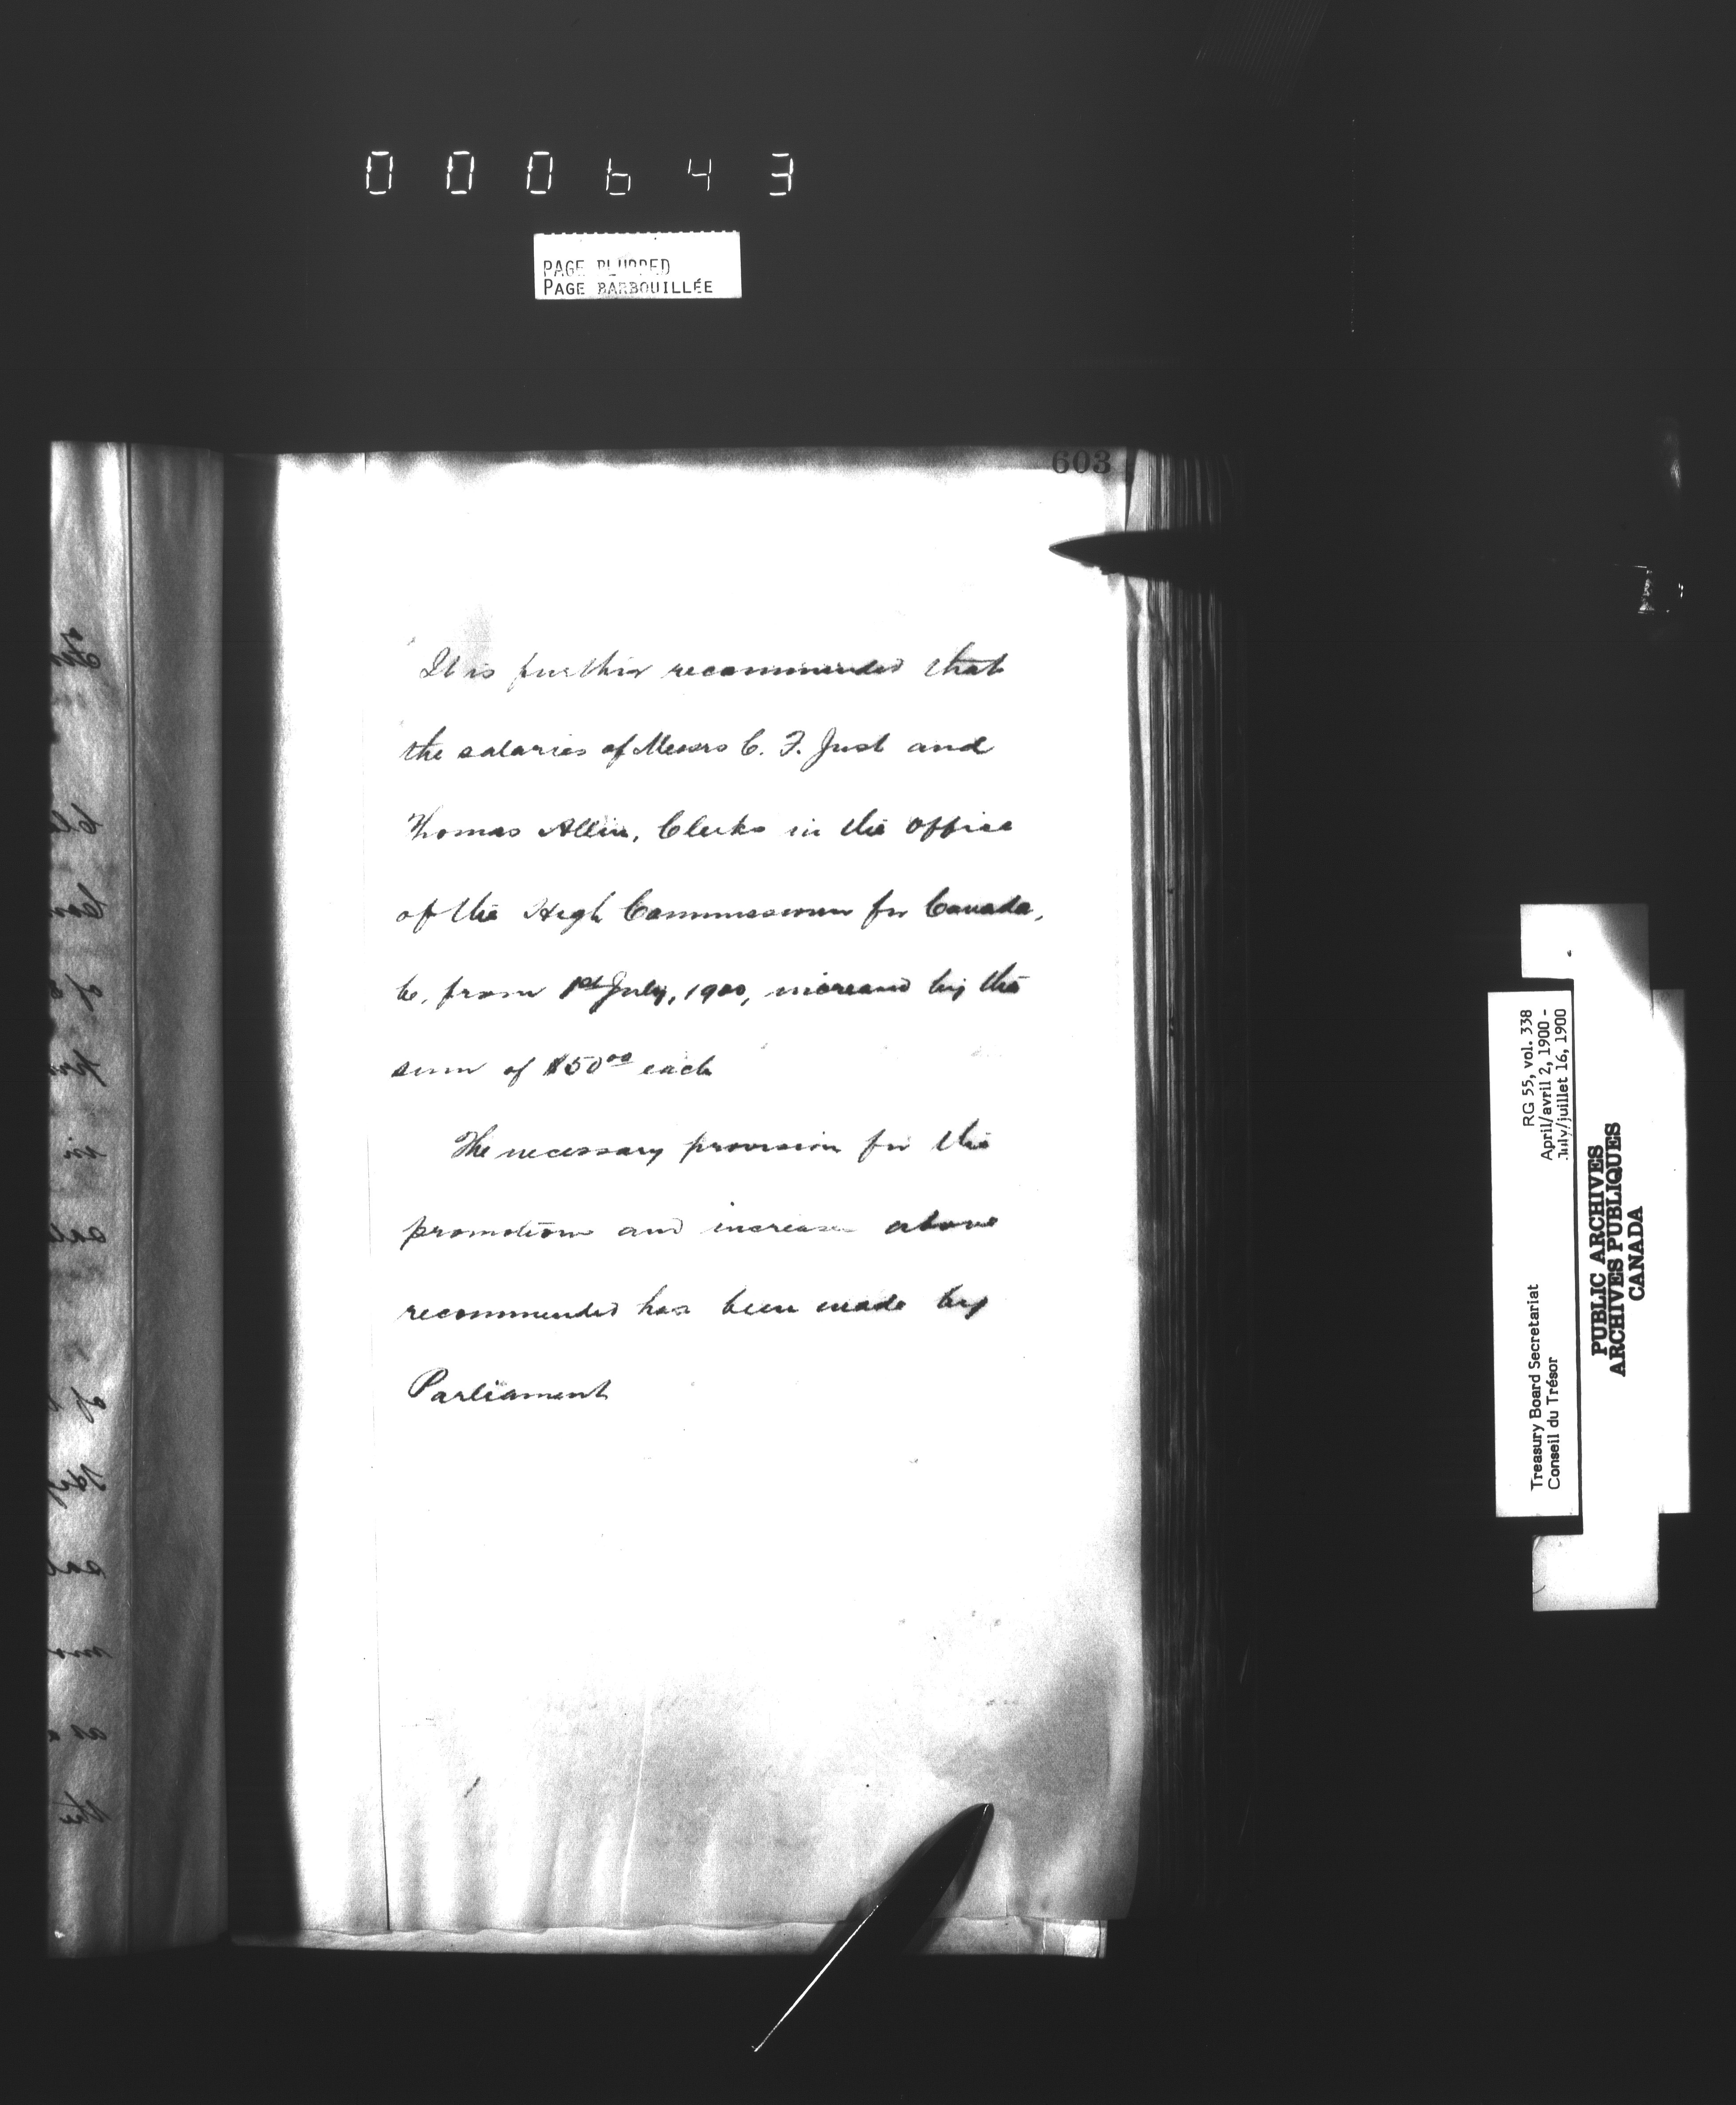 000643
PAGE BLURRED
PAGE BARBOUILLÉE
603
It is further recommended that
the salaries of Messrs C. F. Just and
Thomas Allin, Clerks in the Office
of the High Commissioner for Canada,
be, from 1st July, 1900, increased by the
sum of $50.00 each
The necessary provision for the
promotions and increases above
recommended has been made by
Parliament
RG 55, vol. 338
April/avril 2, 1900 -
July/juillet 16, 1900
Treasury Board Secretariat
Conseil du Trésor
PUBLIC ARCHIVES
ARCHIVES PUBLIQUES
CANADA